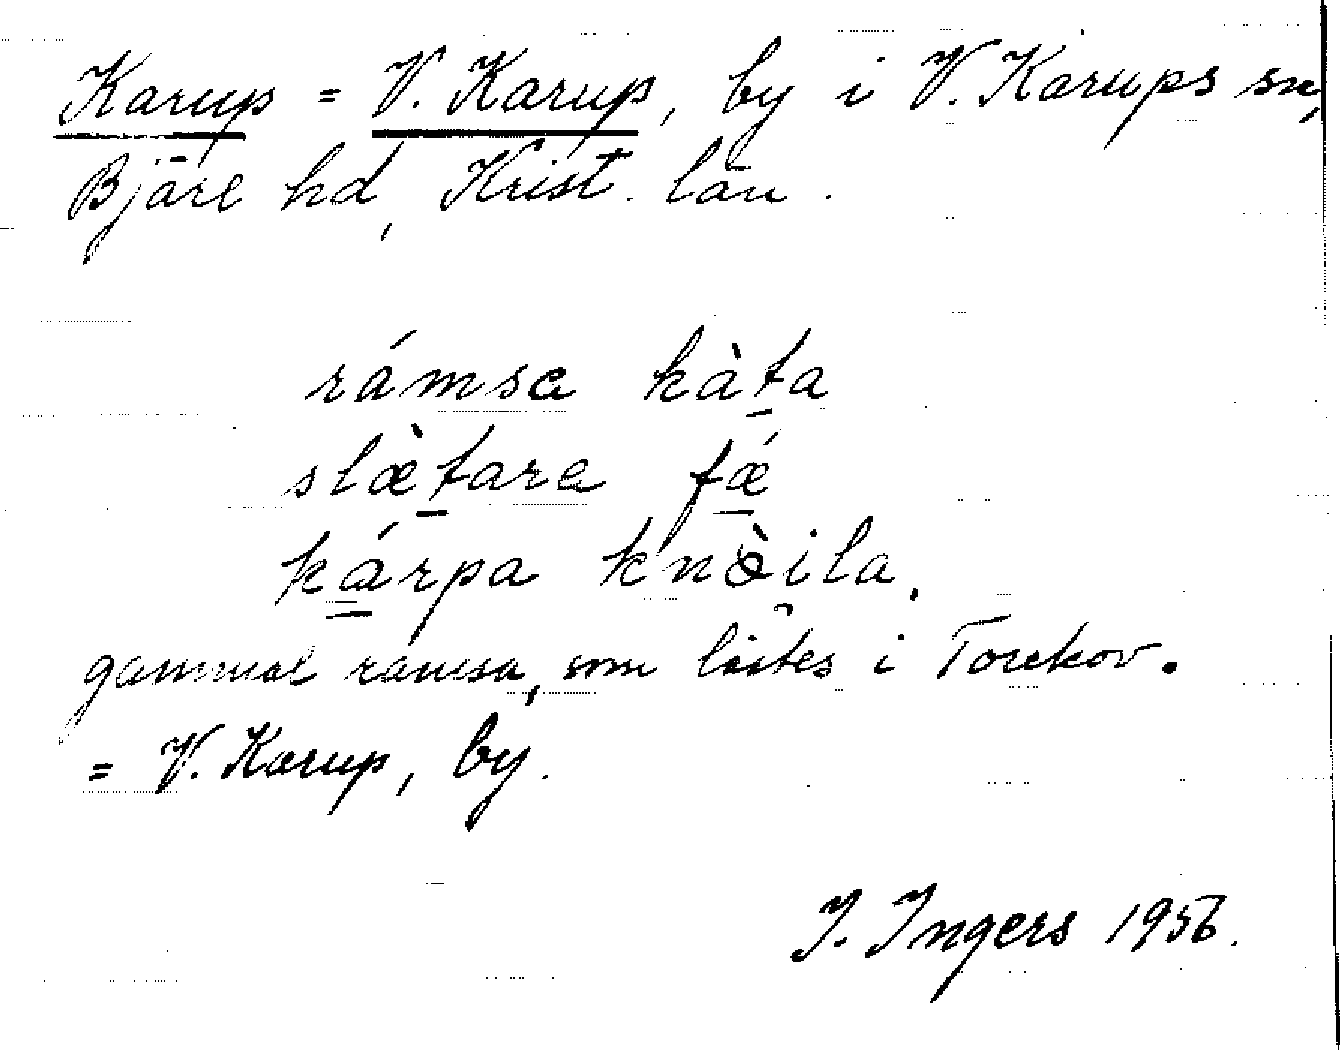 Karup = V. Karup, by i V. Karups sn,
Bjäre hd, Krist. län.
rámsa kàta
slæ̀tara fǽ
kárpa knòila.
gammal ramsa, som lästes i Torekov.
= V. Karup, by.
I. Ingers 1956.